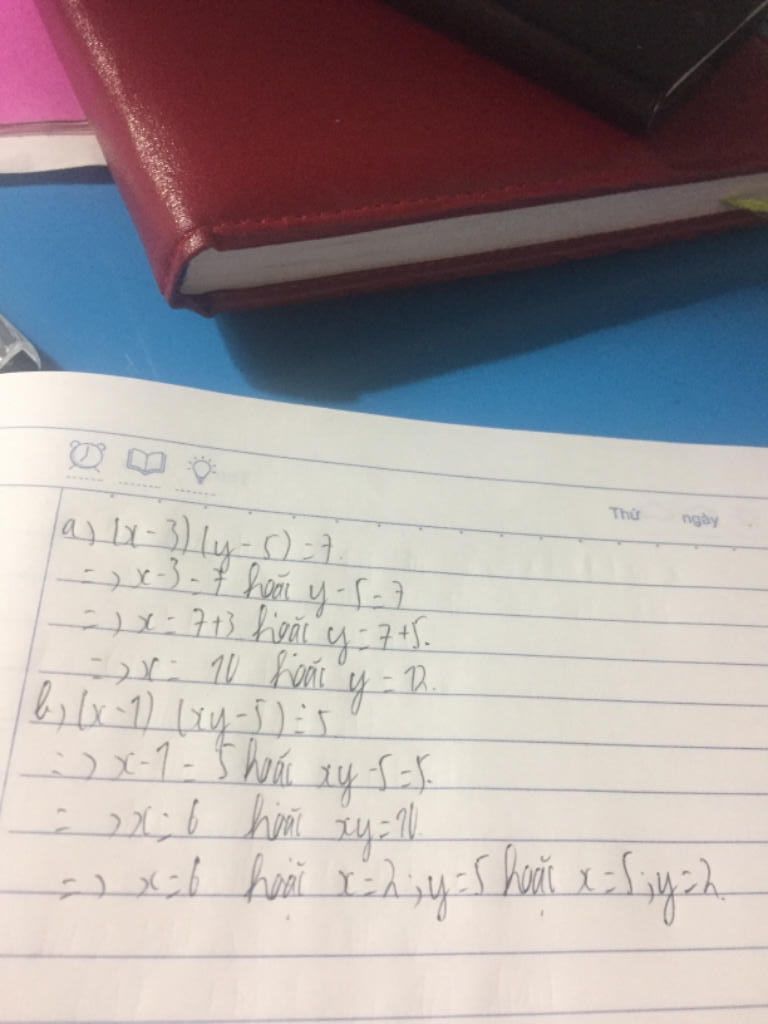 Thứ ngày
a) (x-3)(y-5)=7.
=> x-3=7 hoặc y-5=7
=> x=7+3 hoặc y=7+5.
=> x= 10 hoặc y=12.
b) (x-1) (xy-5)=5
=> x-1=5 hoặc xy-5=5.
=> x=6 hoặc xy=10.
=> x=6 hoặc x=2;y=5 hoặc x=5;y=2.